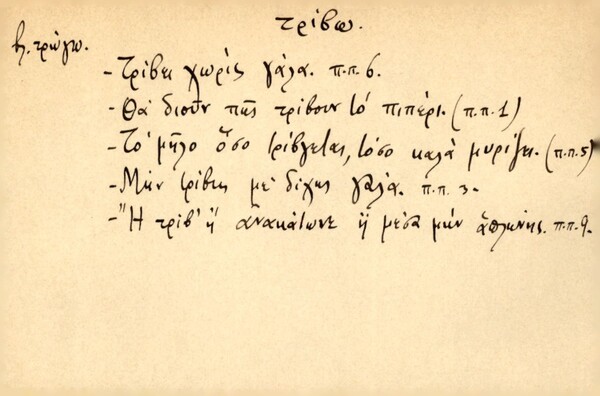 τρίβω.
βλ. τρώγω.
- Τρίβει χωρίς γάλα. π.π. 6.
- Θά διοῦν πῆς τρίβουν τό πιπέρι. (π.π. 1)
- Τό μῆλο ὅσο τρίβγεται, τόσο καλά μυρίζει. (π.π. 5)
- Μήν τρίβης μέ δίχης γάλα. π.π. 3.
- Ἤ τρίβ' ἤ ἀνακάτωνε ἤ μέσα μήν ἁπλώνης. π.π. 9.